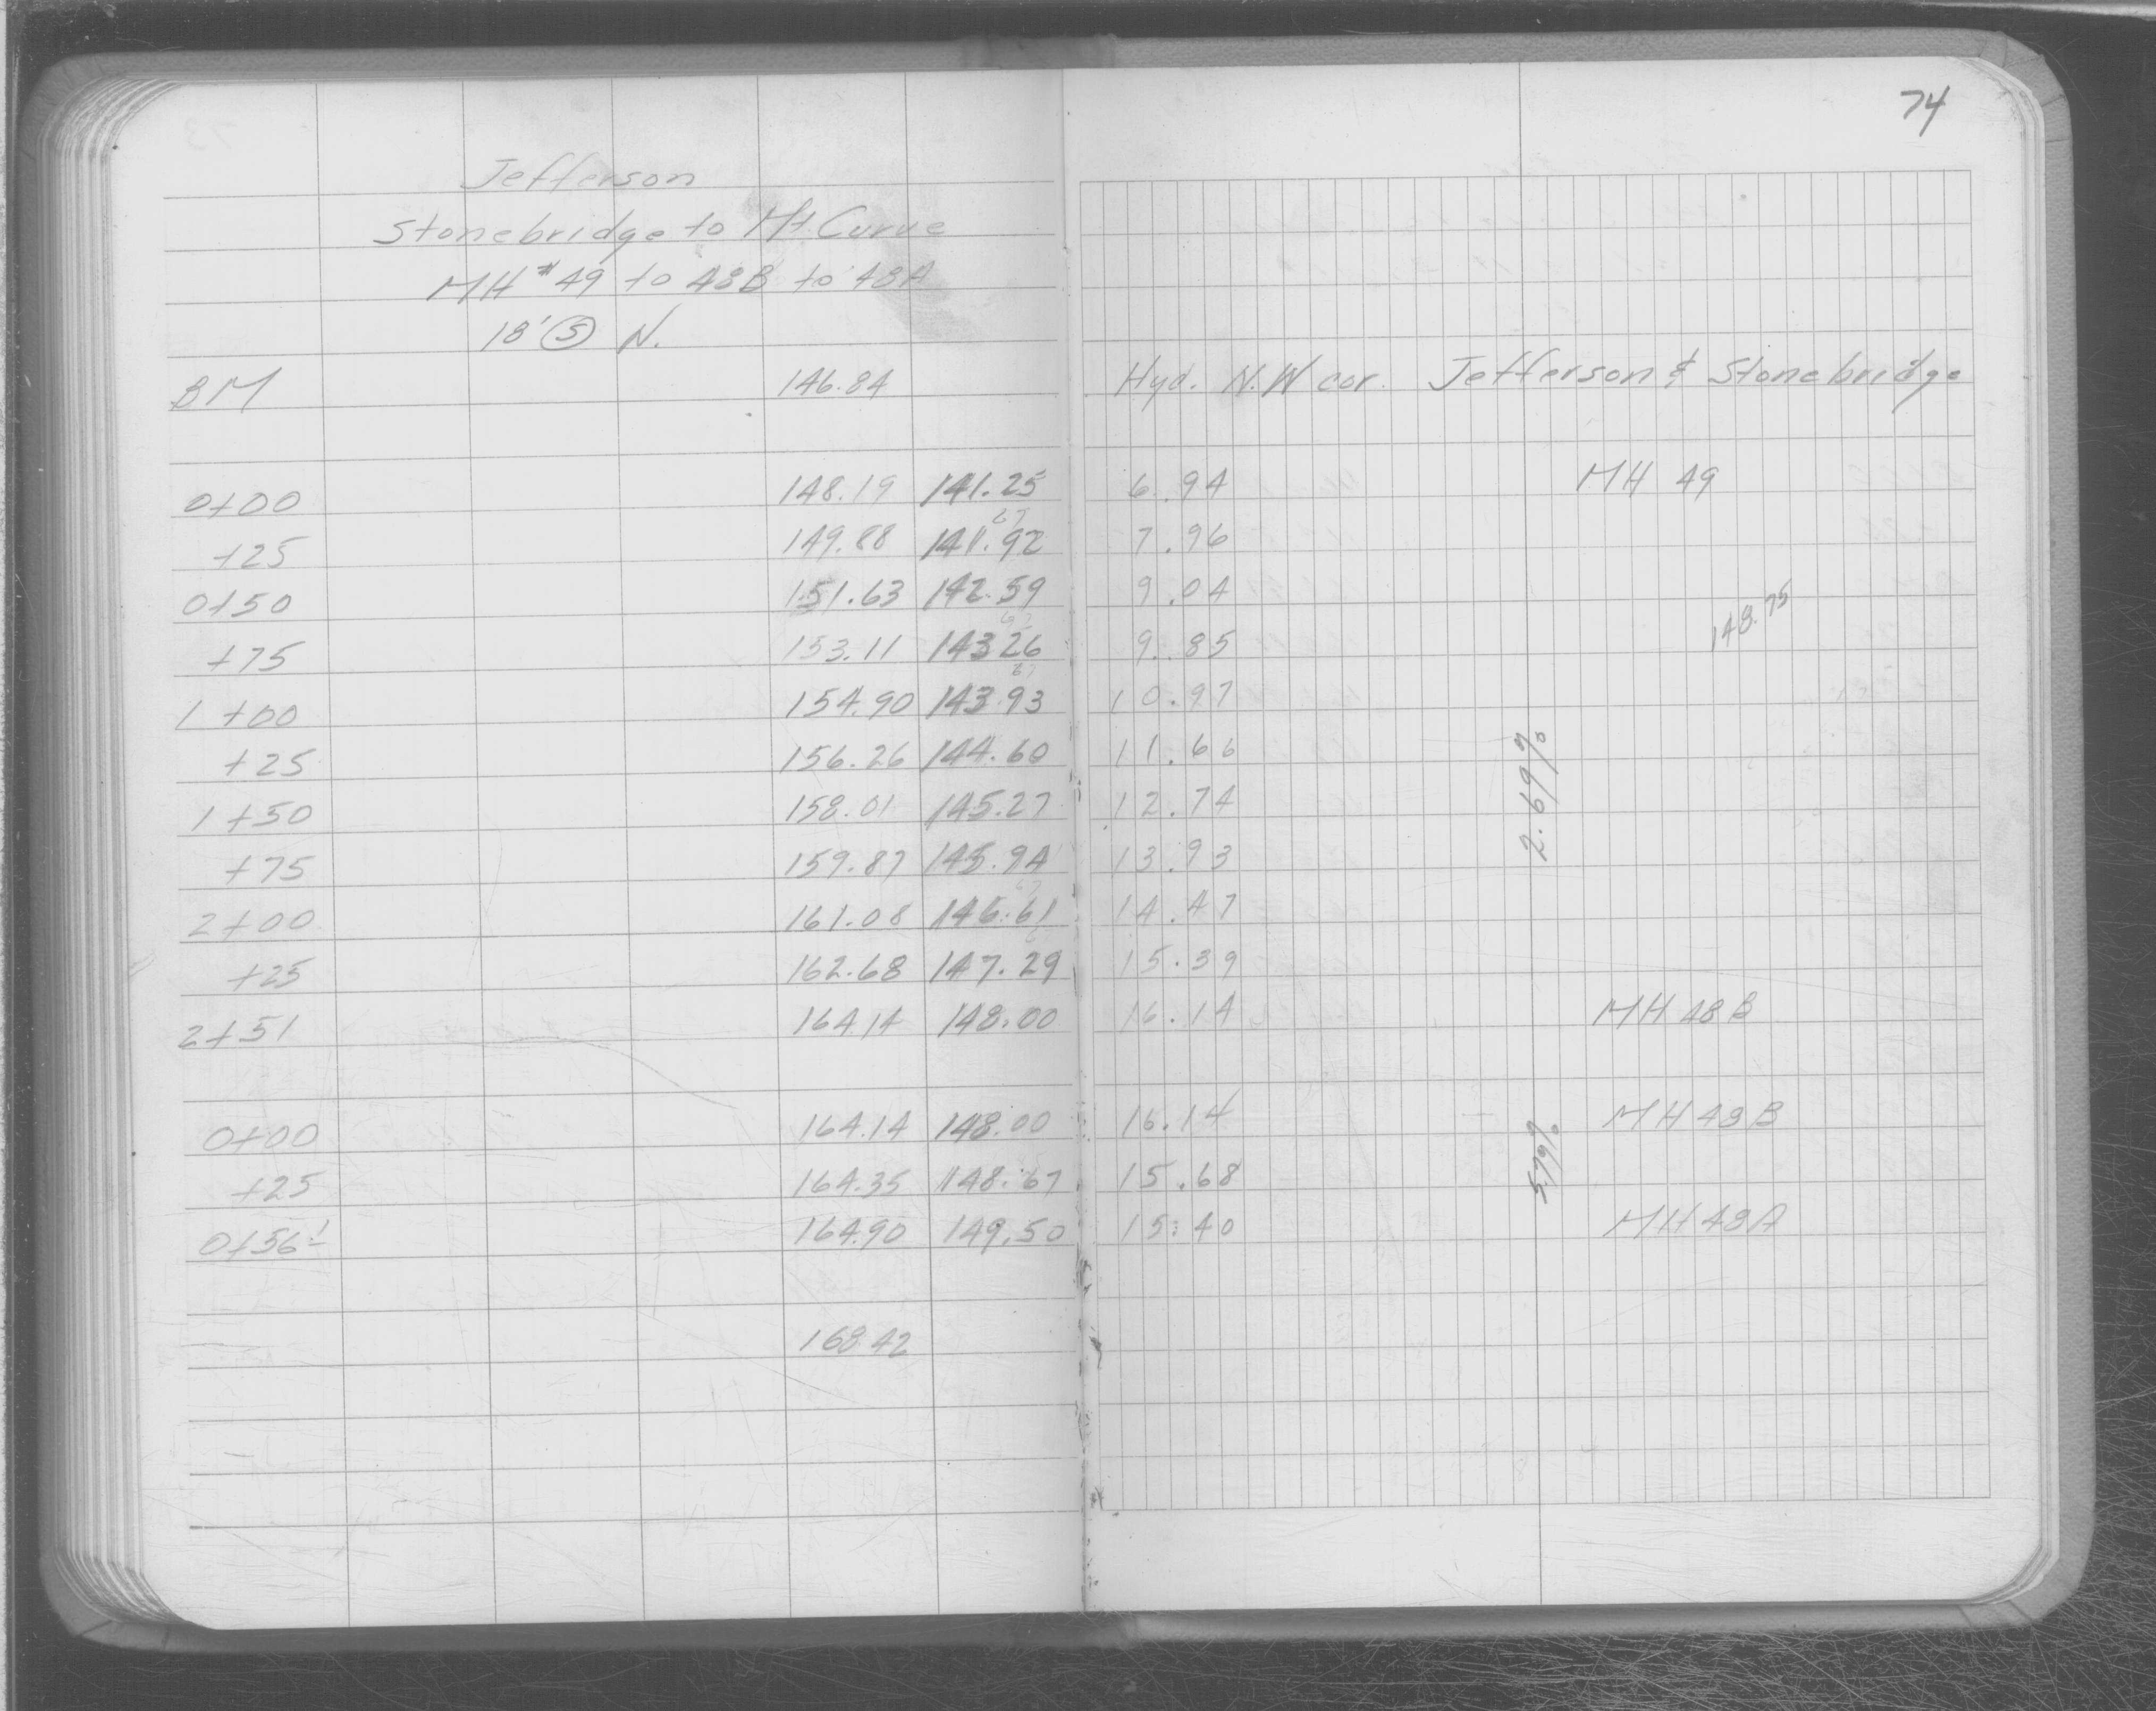 74
Jefferson
Stonebridge to Mt. Curve
MH #49 to 48B to 48A
18' (S) N.
BM 146.84 Hyd. N.W cor. Jefferson & Stonebridge
0+00 148.19 141.25 6.94 MH 49
67
+25 149.88 141.92 7.96
0+50 151.63 142.59 9.04 148.75
67
+75 153.11 143 26 9.85
67
1+00 154.90 143.93 10.97
+25 156.26 144.60 11.66
1+50 158.01 145.27 12.74 2.69%
+75 159.87 145.94 13.93
67
2+00 161.08 146.61 14.47
+25 162.68 147.29 15.39
2+51 164.14 148.00 16.14 MH 48B
0+00 164.14 148.00 16.14 MH 48B
+25 164.35 148.67 15.68
0+56 164.90 149.50 15.40 MH 48A
168.42